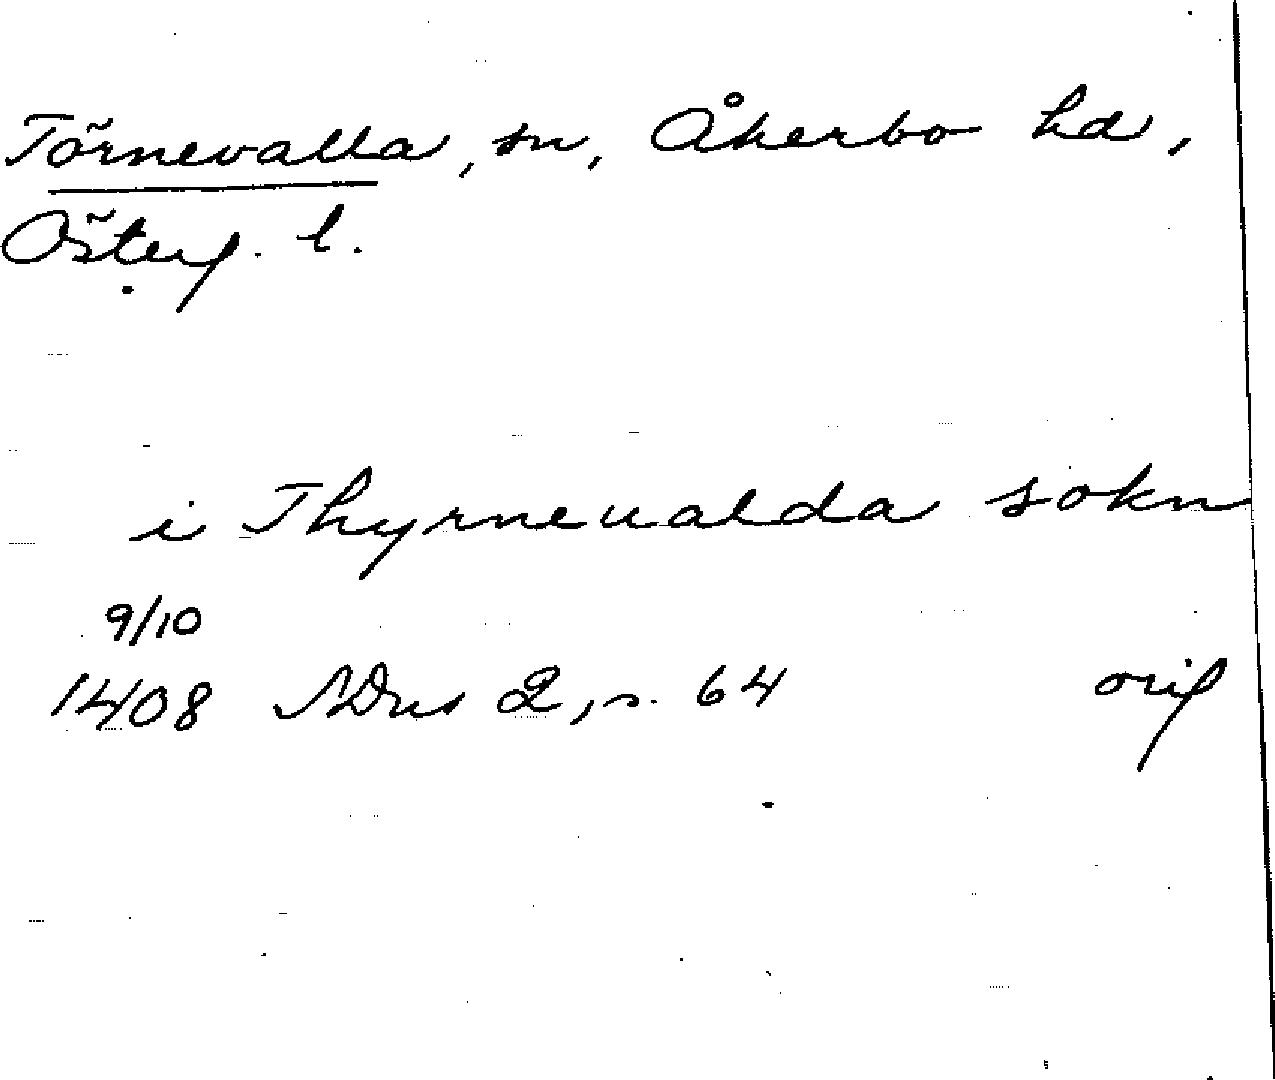 Törnevalla, sn, Åkerbo hd,
Österg. l.
i Thyrneualda sokn
9/10
1408 SDns 2, s. 64 orig